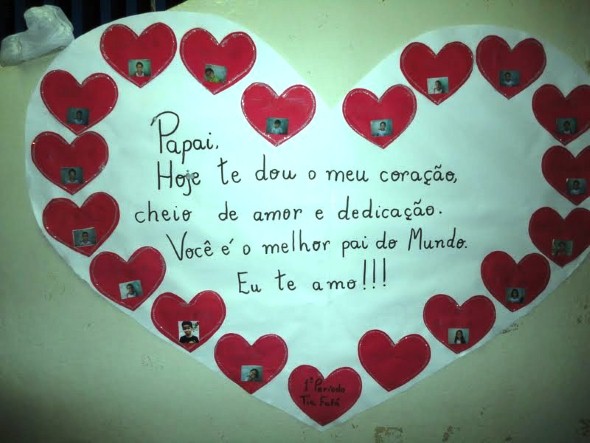 Papai,
Hoje te dou o meu coração,
cheio de amor e dedicação.
Você é o melhor pai do Mundo.
Eu te amo!!!
1º Período
Tia Fafá